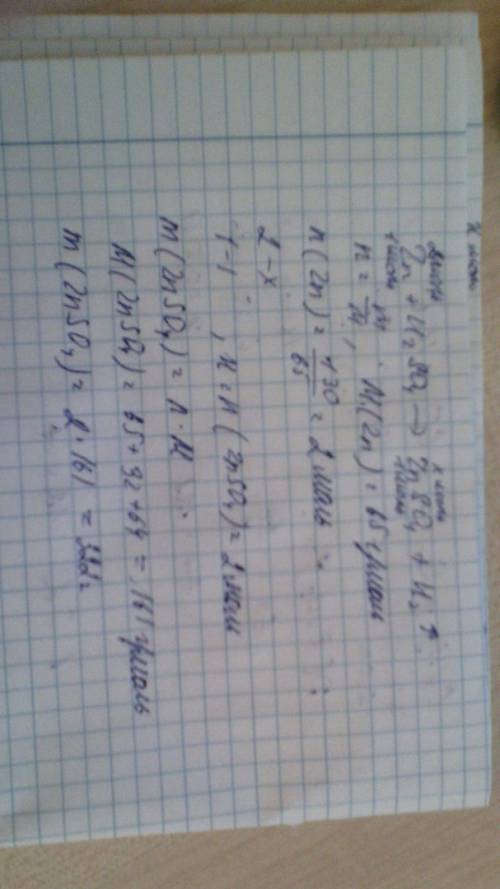 x моль
2 моль x моль
Zn + H₂SO₄ → ZnSO₄ + H₂ ↑
1 моль 1 моль
n = m/M, M(Zn) = 65 г/моль
n(Zn) = 130/65 = 2 моль
2 – x
1 – 1 , x = n(ZnSO₄) = 2 моль
m(ZnSO₄) = n · M
M(ZnSO₄) = 65 + 32 + 64 = 161 г/моль
m(ZnSO₄) = 2 · 161 = 322г